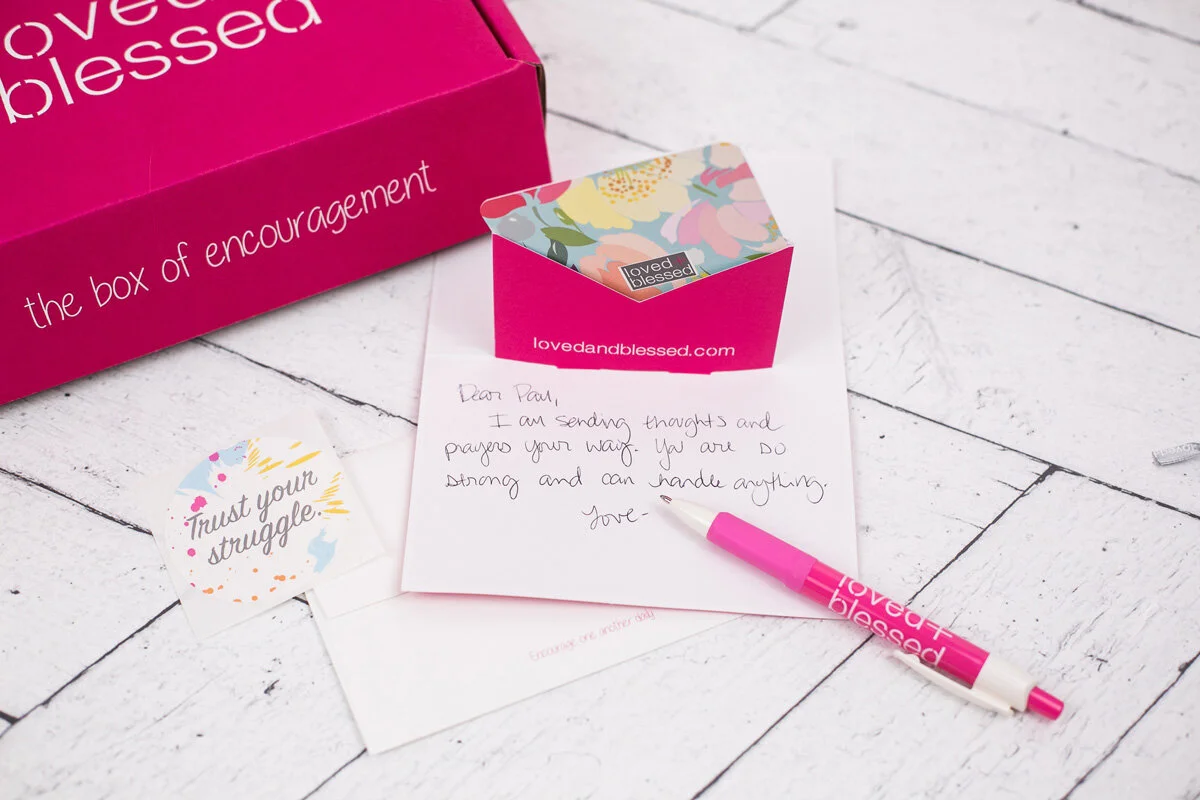 loved
blessed
the box of encouragement
loved +
blessed
lovedandblessed.com
Dear Pam,
I am sending thoughts and
prayers your way. You are so
strong and can handle anything.
Love-
Trust your
struggle.
Encourage one another daily
loved+
blessed